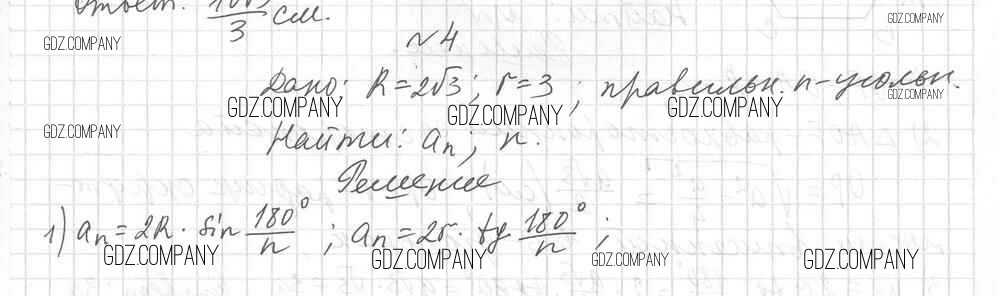 Ответ: 10√3/3 см.
GDZ.COMPANY GDZ.COMPANY
№4
Дано: R=2√3; r=3; правильн. n-угольн.
GDZ.COMPANY GDZ.COMPANY GDZ.COMPANY GDZ.COMPANY
GDZ.COMPANY
Найти: aₙ; n.
Решение
1) aₙ=2R · sin 180°/n ; aₙ=2r · tg 180°/n ;
GDZ.COMPANY GDZ.COMPANY GDZ.COMPANY GDZ.COMPANY